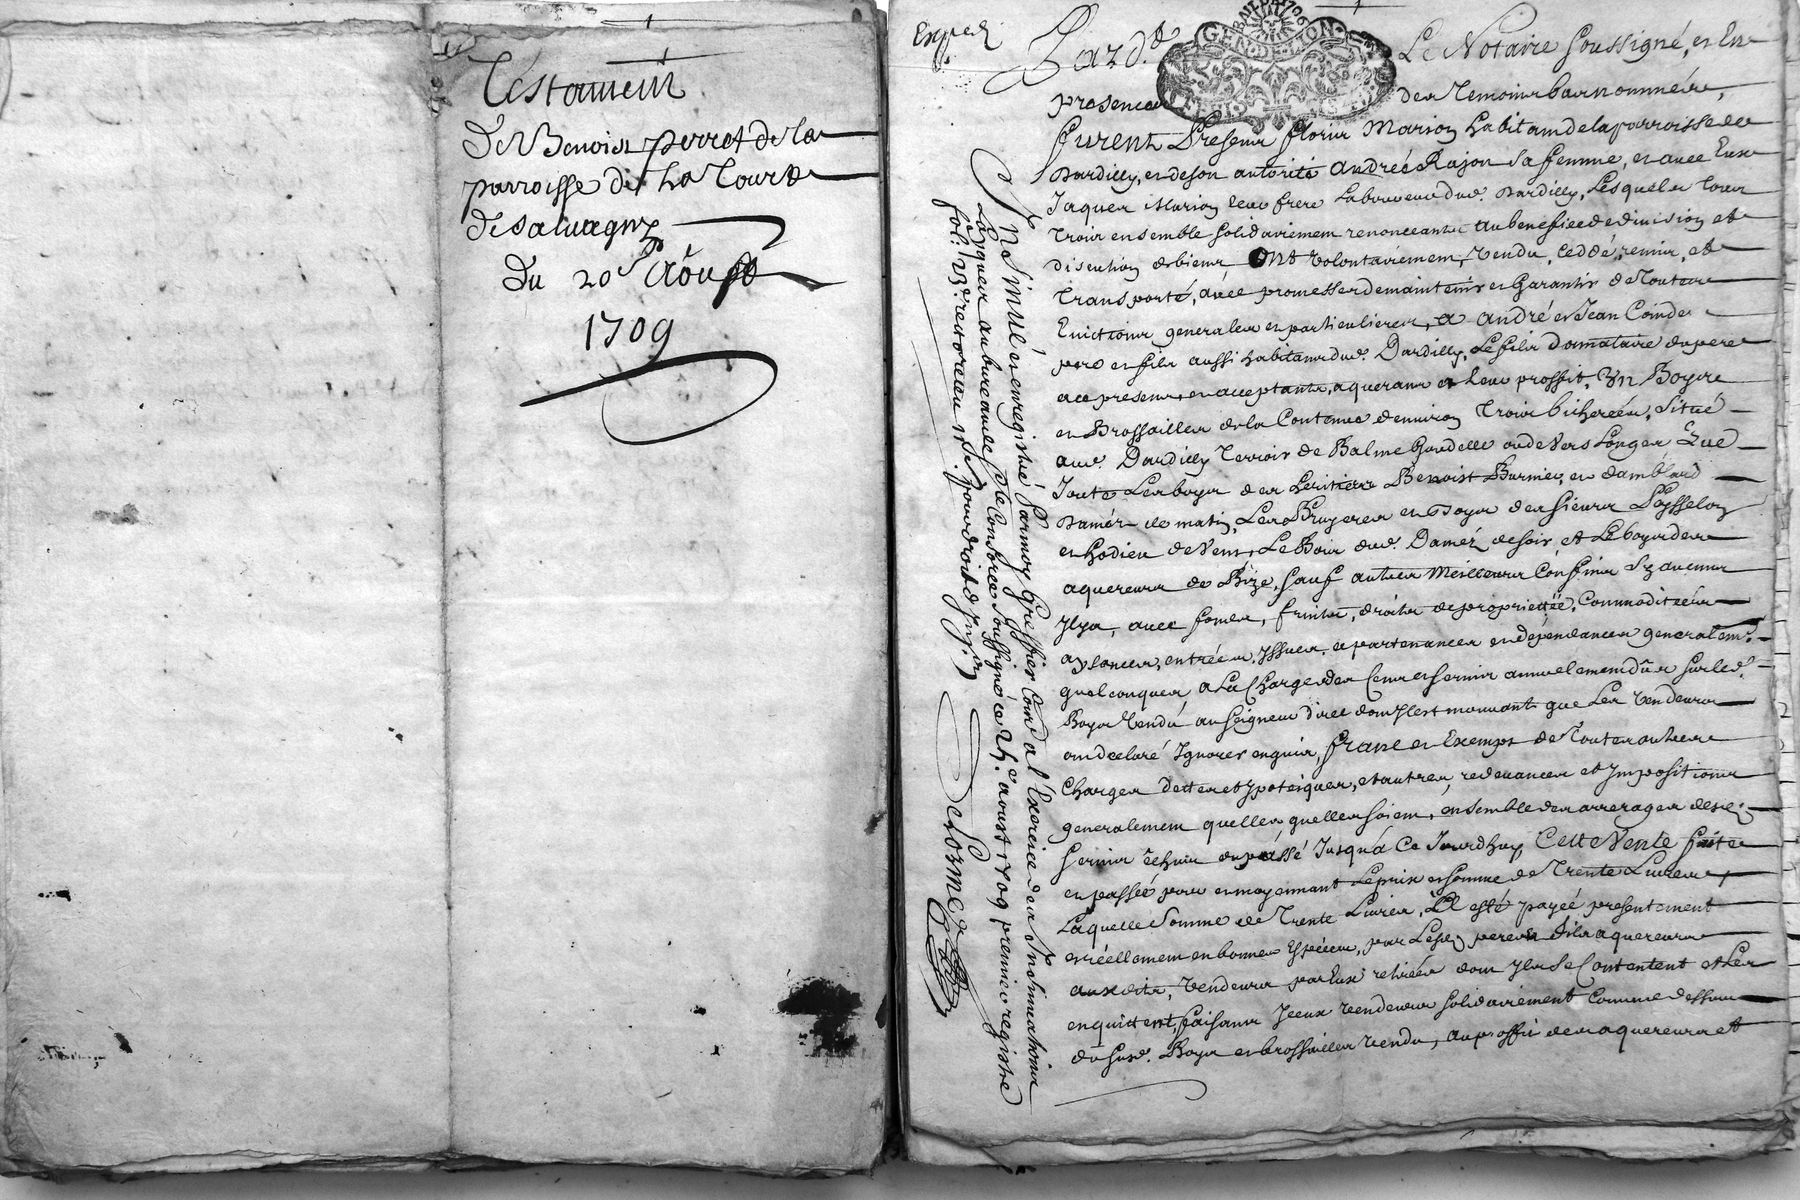 Testament
De Benoist perret de la
parroisse de La Tour de
de salvagny
Du 20e Aoust
1709
Exped
Par de
GEN·DE·LYON·
Le Notaire soussigné, et En
presence des Temoins bas nommées,
furent Presens florie Marion habitan de la parroisse de
Dardilly, et de son autorité Andrée Rajon sa femme, et avec Eux
Jaques Marion leur frere Laboureur dud. Dardilly, Lesquels Tous
Trois ensemble solidairement renonceants au benefice de division et
discution de biens, Ont volontairement, Vendu, Ceddé, remis, et
Transporté, avec promesse de maintenir et Garantir de Toutes
Evictions generales et particulieres, a André et Jean Coinde
pere et fils aussi habitans dud. Dardilly, Le fils donnataire du pere
ace presens, et acceptants, aquerans et a Leur proffit, Un Boyre
et Brossailles de la Contenue d'environ Trois bicherées, Situé
aud. Dardilly Terroir de Balme ou de Vers Longes Qui
Jouté Les boys des heritiers Benoist Burnier, et
Damér de matin, Les Bruyeres et Boys des sieurs
et hodieu de Vent, Le Bois dud. Daméz de soir, et Le boys des
aquereurs de Bize, sauf autres Meilleurs Confins Sy aucuns
Ilya, avec fonds, fruits, droits de proprieteé, Commoditeés
aysances, entrées, Issues, apartenances et dépendances generalemt.
quelconques a La Charge des Cens et servis annuelement dûs sur led.
Boys Vendu au seigneur direct dont Il est mouvant que Les Vendeurs
ont declaré Ignorer enquis, franc et Exempt de Toutes autres
Charges dettes et ypoteques, et autres, redevances et Impositions
generalement quelles quelles soient, ensemble des arrerages desd.
servis échus du passé Jusqu'à Ce Jourdhuy Cette Vente faite
et passée pour et moyennant Le prix et somme de Trente Livres,
Laquelle Somme de Trente Livres, A esté payeé presentement
et réellement en bonnes Espéces, par Lesd. pere et fils aquereurs
auxdits, Vendeurs par Eux retirée dont Ils se Contentent et Les
en quittent, faisants Iceux vendeurs solidairement Comme dessus
du susd. Boys et brossailles vendu, au proffit desd. aquereurs et
Insinué et enregistré Par moy Greffier Com̃is a l'Exercice des Insinuations
Laiques au bureau de Controlle soussigné ce 25e. aoust 1709 premier registre
fol. 123. recto receu Jourdroit d'Ins.on
DeLorme